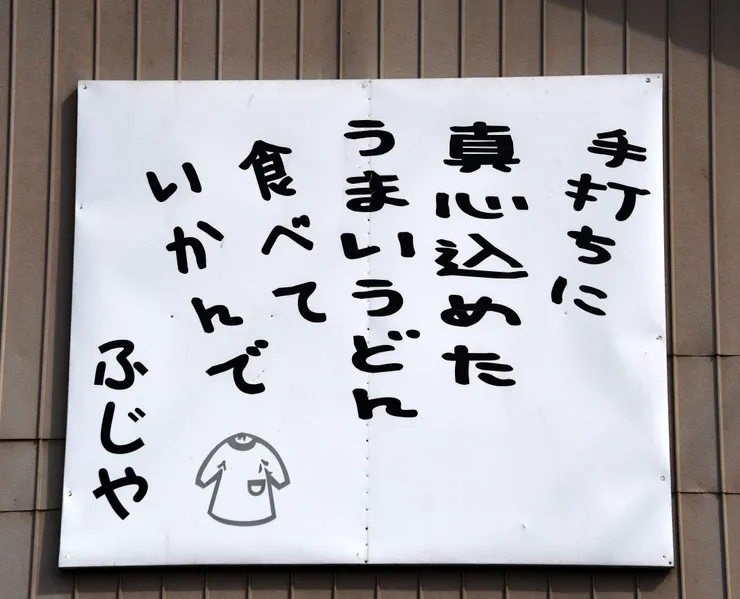 手打ちに
真心込めた
うまいうどん
食べて
いかんで
ふじや